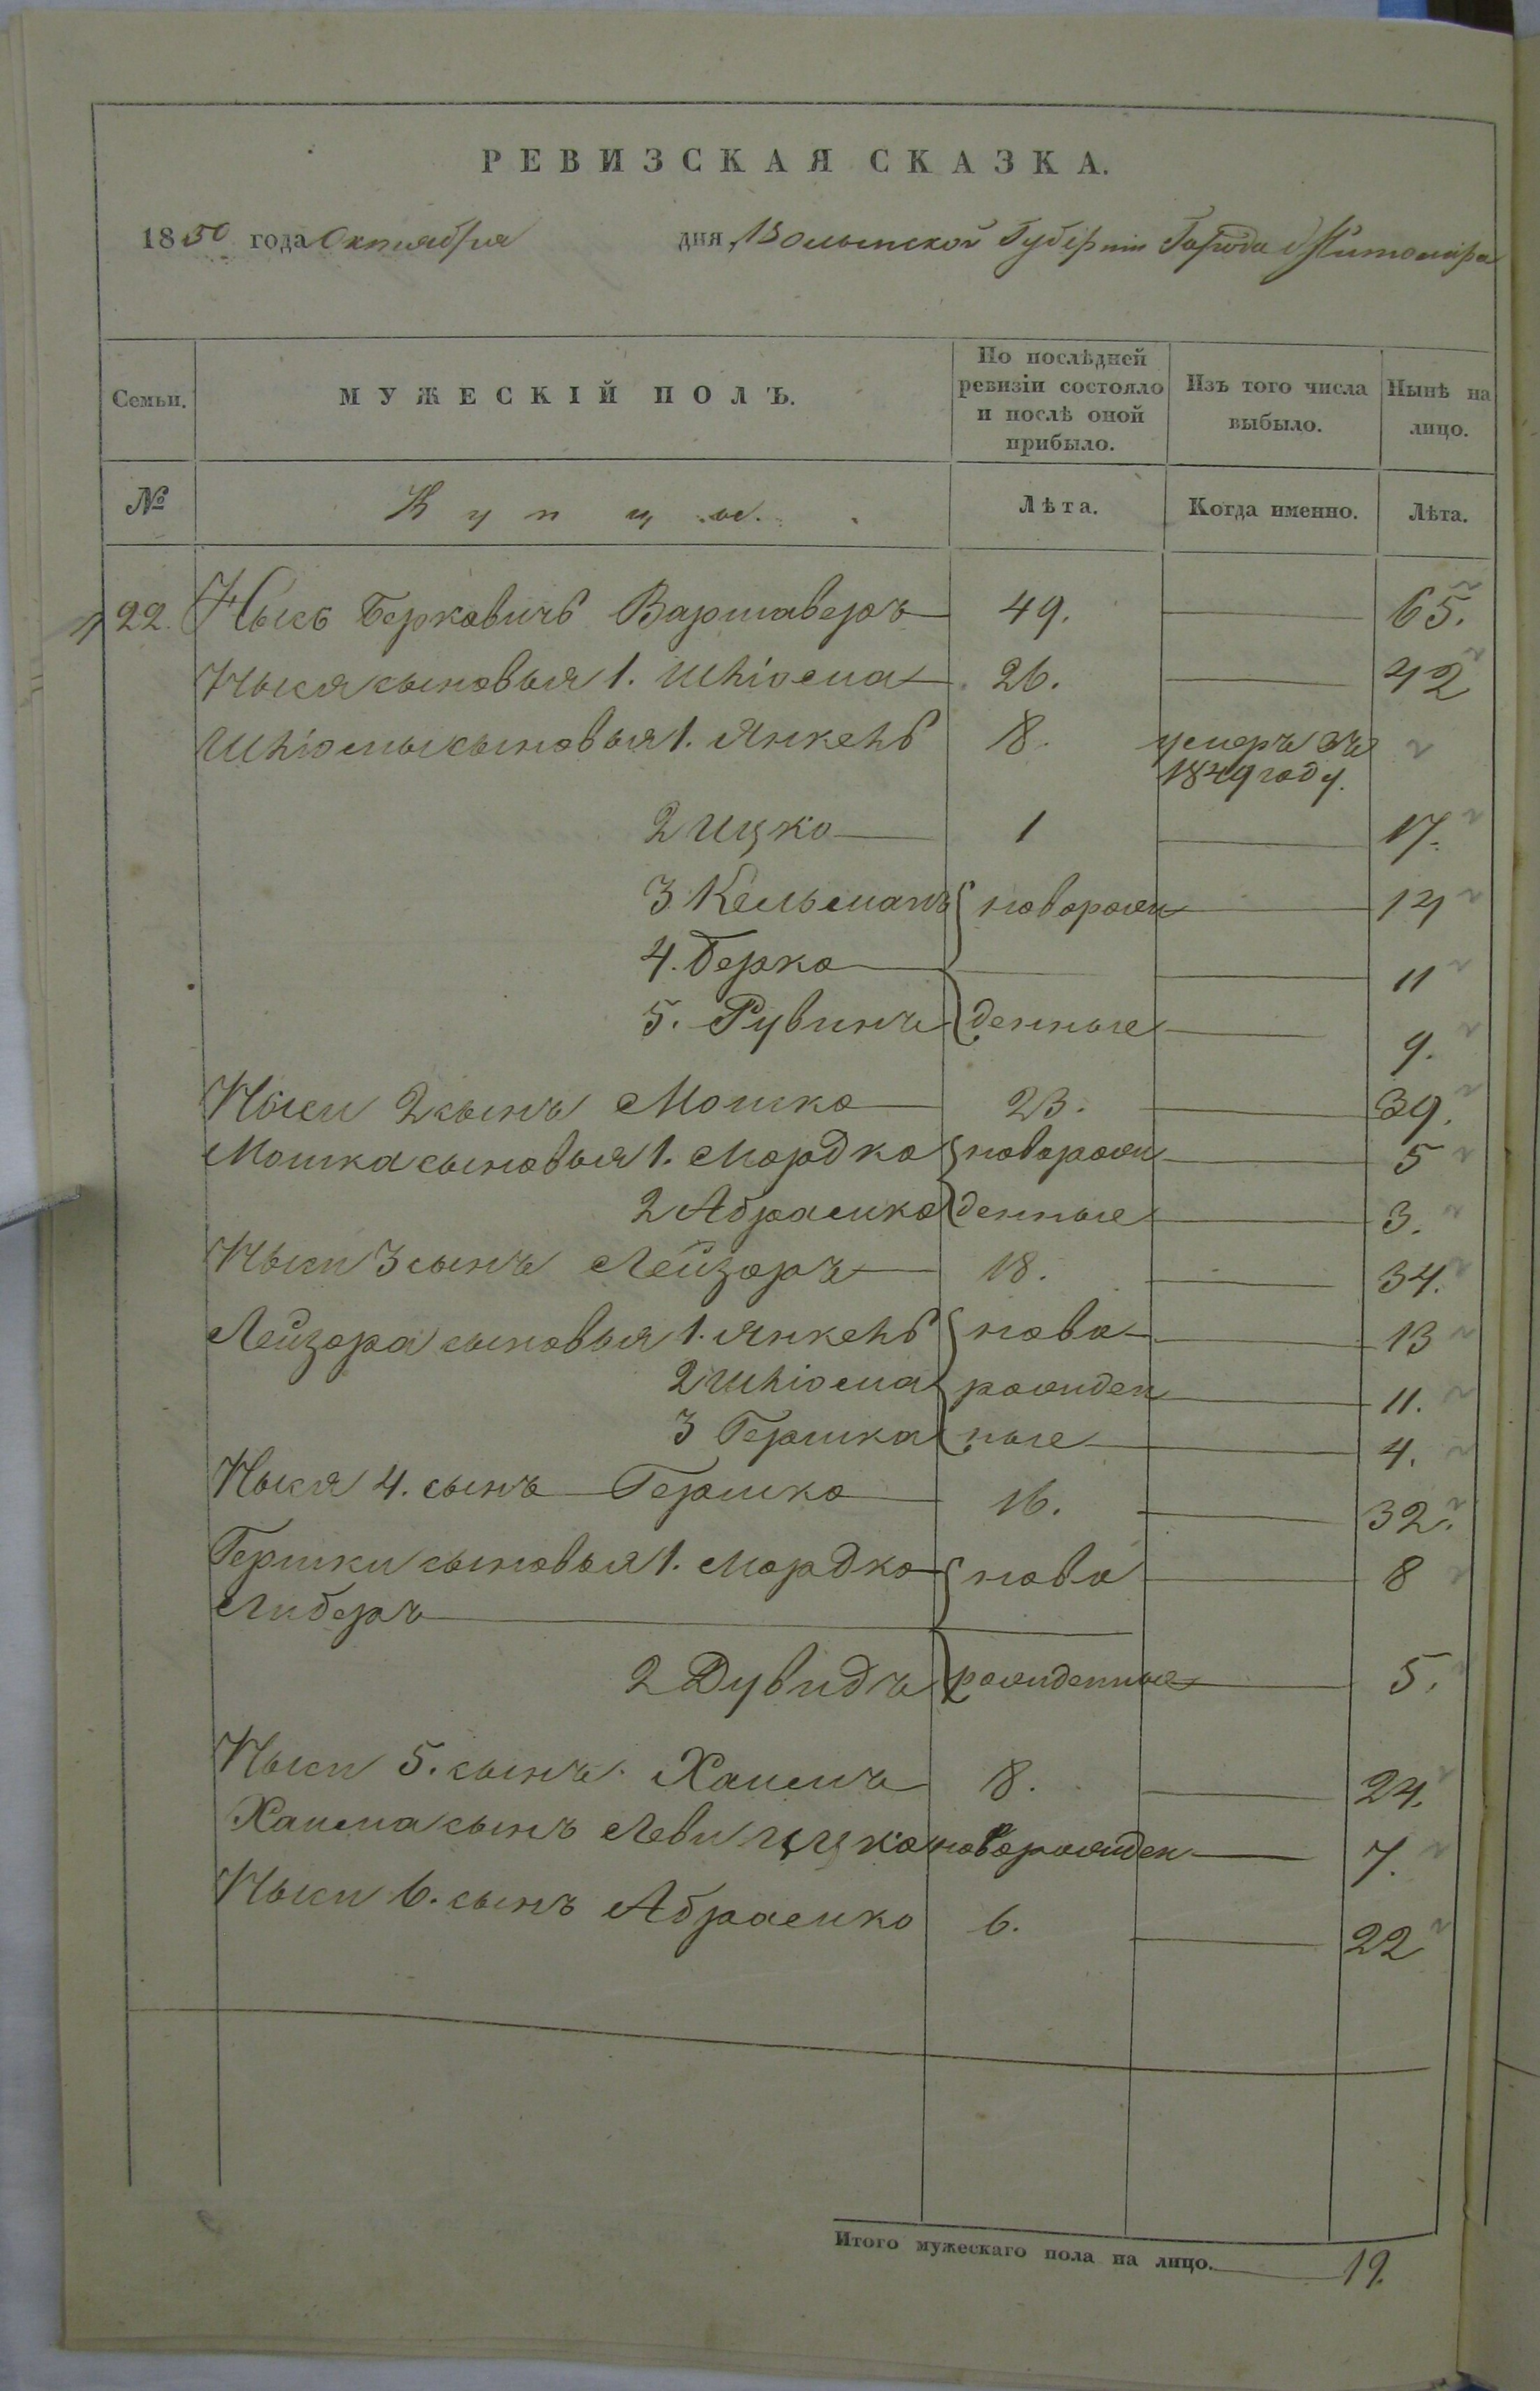 РЕВИЗСКАЯ СКАЗКА.
1850 года Октября дня, Волынской Губерніи Города Житоміра
Семьи. МУЖЕСКІЙ ПОЛЪ. По послѣдней ревизіи состояло и послѣ оной прибыло. Изъ того числа выбыло. Нынѣ на лицо.
№ Купцы. Лѣта. Когда именно. Лѣта.
22. Нысь Берковичъ Варшаверъ 49. 65.
Ныся сыновья 1. Шліома 26. 42
Шліомы сыновья 1. Янкель 8. умеръ въ
1849 году.
2 Ицко 1 17.
3 Кельманъ новорож 14
4. Берко 11
5. Рувинъ денные 9.
Ныси 2 сынъ Мошко 23. 39.
Мошка сыновья 1. Мордко новорож 5
2 Абрамко денные 3.
Ныси 3 сынъ Лейзоръ 18. 34.
Лейзора сыновья 1. Янкель ново 13
2 Шліома рожден 11.
3 Гершка ные 4.
Ныся 4. сынъ Гершко 16. 32.
Гершки сыновья 1. Мордко ново 8
Либеръ
2 Дувидъ рожденные 5.
Ныси 5. сынъ Хаимъ 8. 24.
Хаима сынъ Леви Ицко новорожден 7.
Ныси 6. сынъ Абрамко 6. 22
Итого мужескаго пола на лицо. 19.